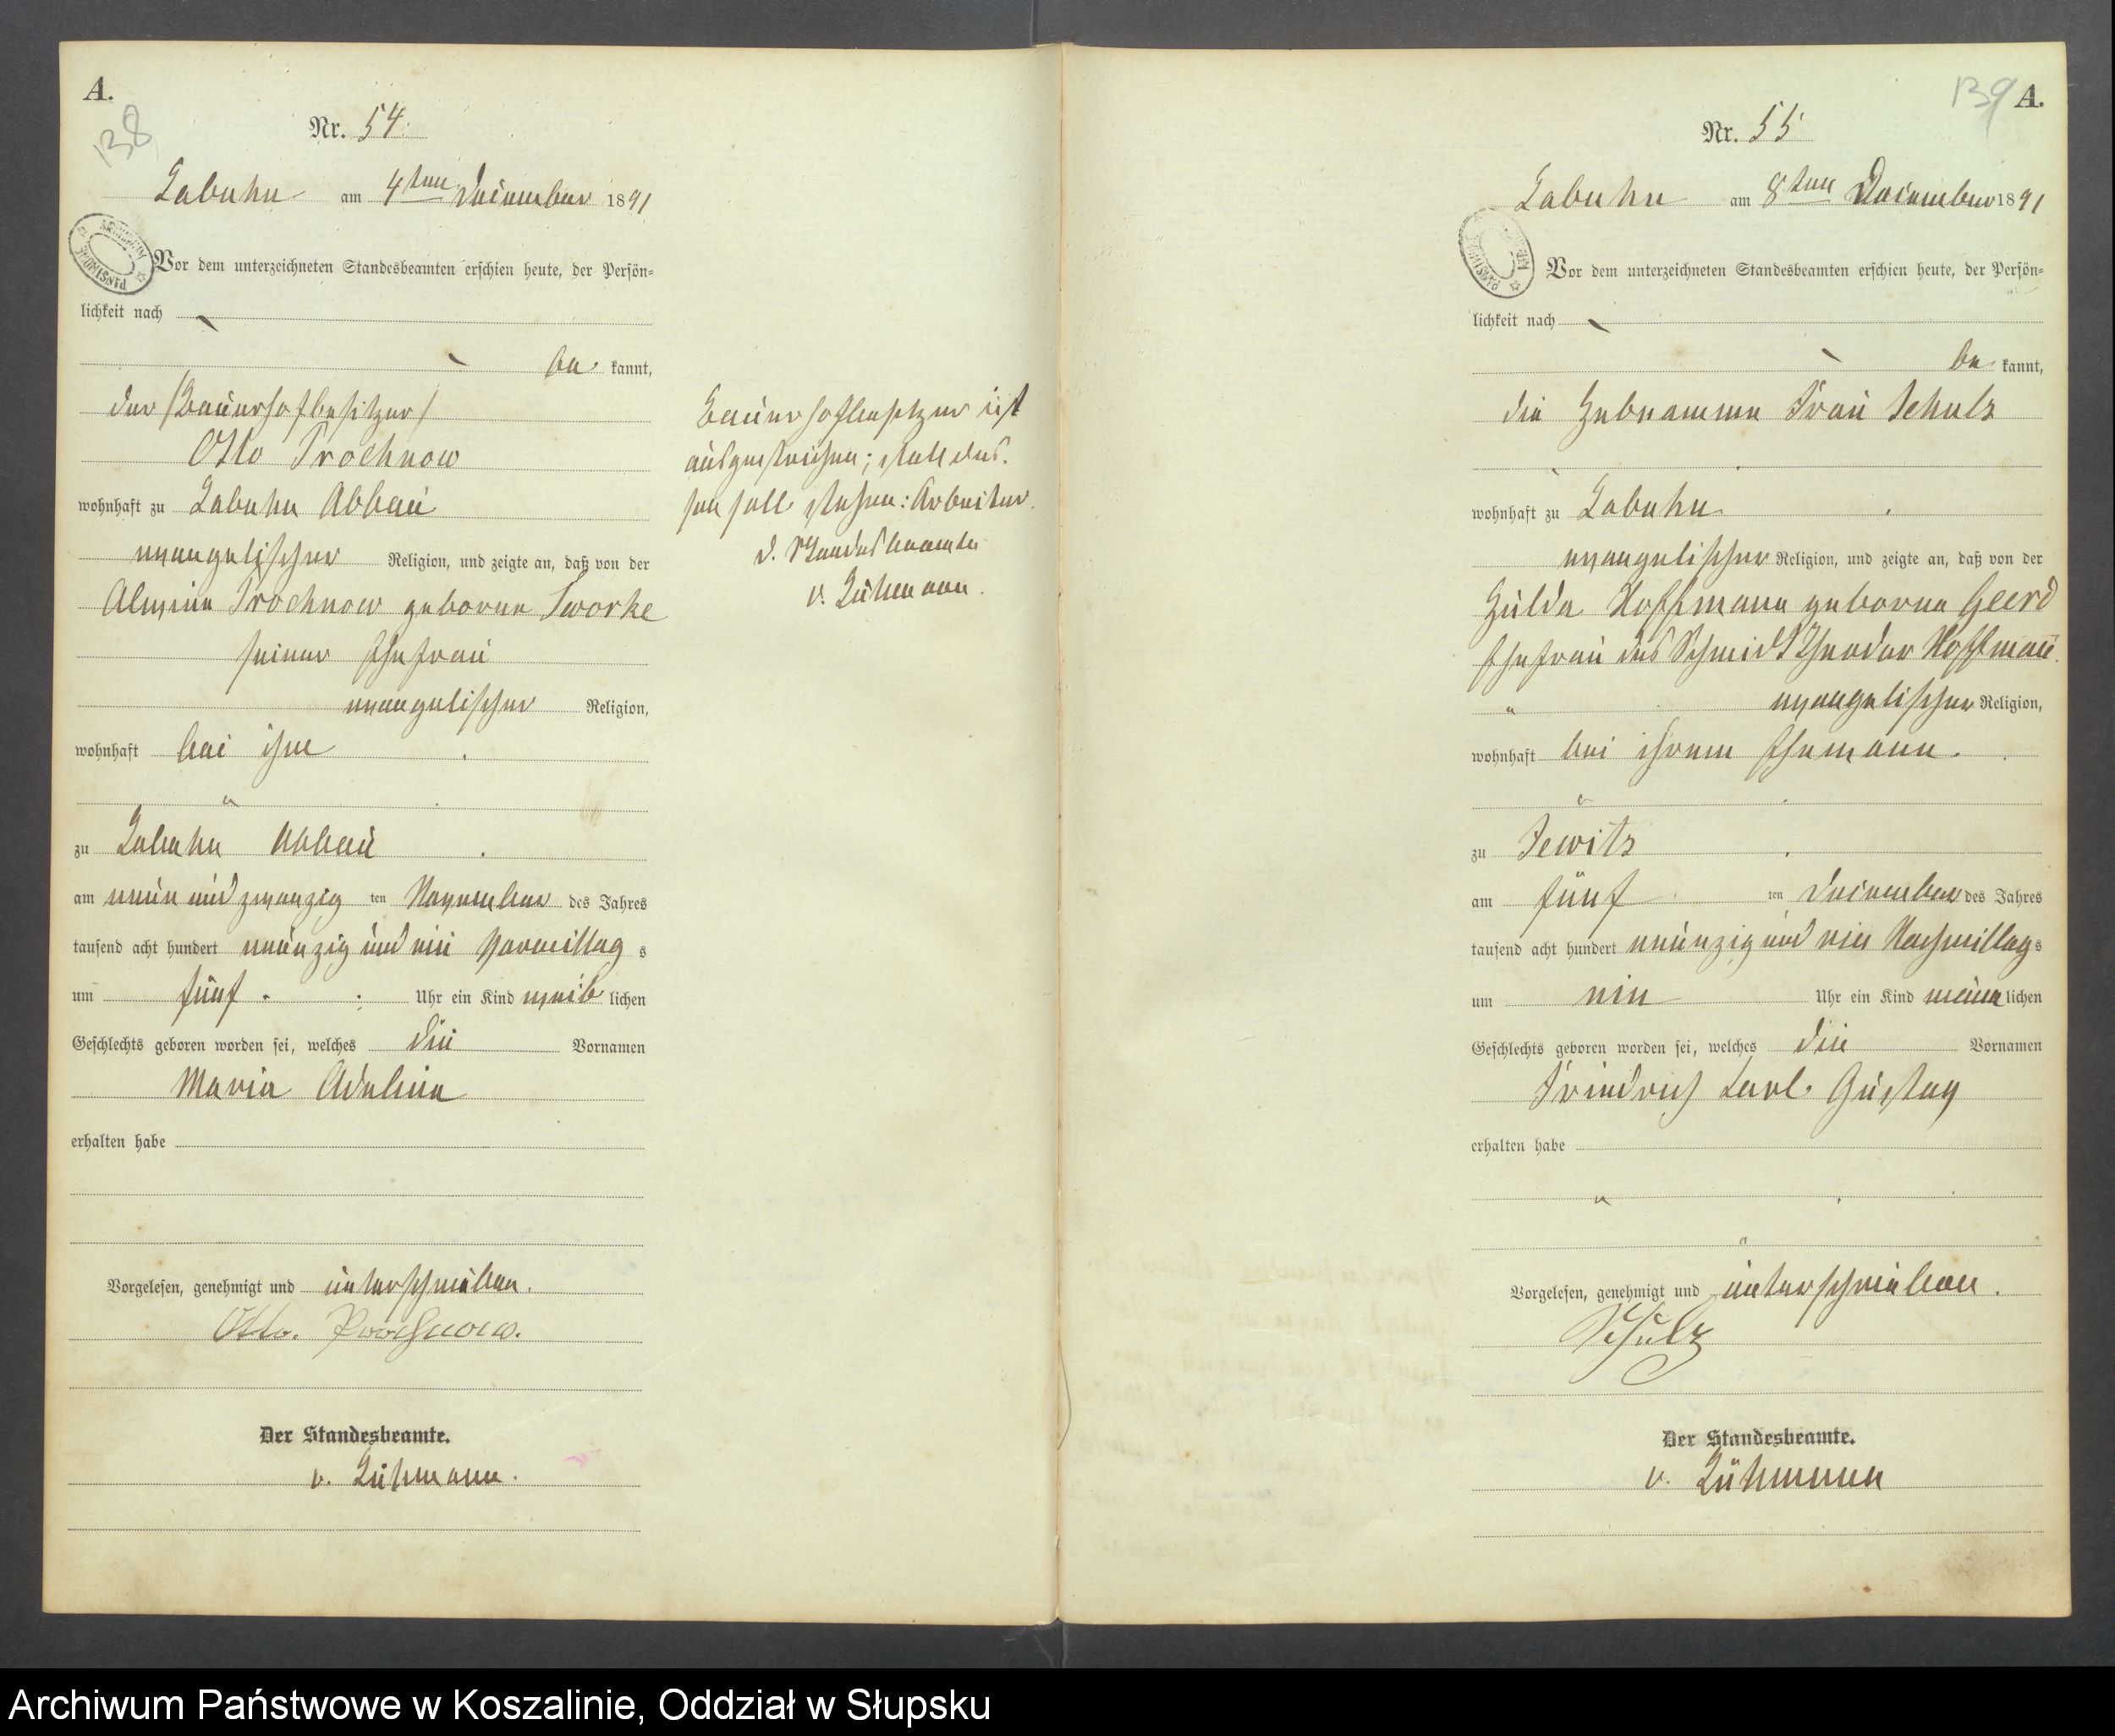 A.
138
Nr. 54.
Labuhn am 4ten December 1891
Vor dem unterzeichneten Standesbeamten erschien heute, der Persön-
lichkeit nach
be kannt,
der /Bauerhofbesitzer/
Otto Prochnow
wohnhaft zu Labuhn Abbau
evangelischer Religion, und zeigte an, daß von der
Alwine Prochnow geborne Tworke
seiner Ehefrau
evangelischer Religion,
wohnhaft bei ihm
zu Labuhn Abbau
am neun und zwanzig ten November des Jahres
tausend acht hundert neunzig und ein Vormittag s
um fünf Uhr ein Kind weib lichen
Geschlechts geboren worden sei, welches die Vornamen
Maria Adeline
erhalten habe
Vorgelesen, genehmigt und unterschrieben.
Otto. Prochnow.
Der Standesbeamte.
v. Lühmann.
Bauerhofbesitzer ist
ausgestrichen; statt des-
sen soll stehen: Arbeiter.
d. Standesbeamte
v. Lühmann.
139 A.
Nr. 55
Labuhn am 8ten December 1891
Vor dem unterzeichneten Standesbeamten erschien heute, der Persön-
lichkeit nach
be kannt,
die Hebeamme Frau Schulz
wohnhaft zu Labuhn
evangelischer Religion, und zeigte an, daß von der
Hulda Hoffmann geborne Geerd
Ehefrau des Schmidt Theodor Hoffmann
evangelischer Religion,
wohnhaft bei ihrem Ehemann.
zu Jewitz
am fünf ten December des Jahres
tausend acht hundert neunzig und ein Nachmittag s
um ein Uhr ein Kind männ lichen
Geschlechts geboren worden sei, welches die Vornamen
Friedrich Carl Gustav
erhalten habe
Vorgelesen, genehmigt und unterschrieben.
Schulz
Der Standesbeamte.
v. Lühmann
Archiwum Państwowe w Koszalinie, Oddział w Słupsku